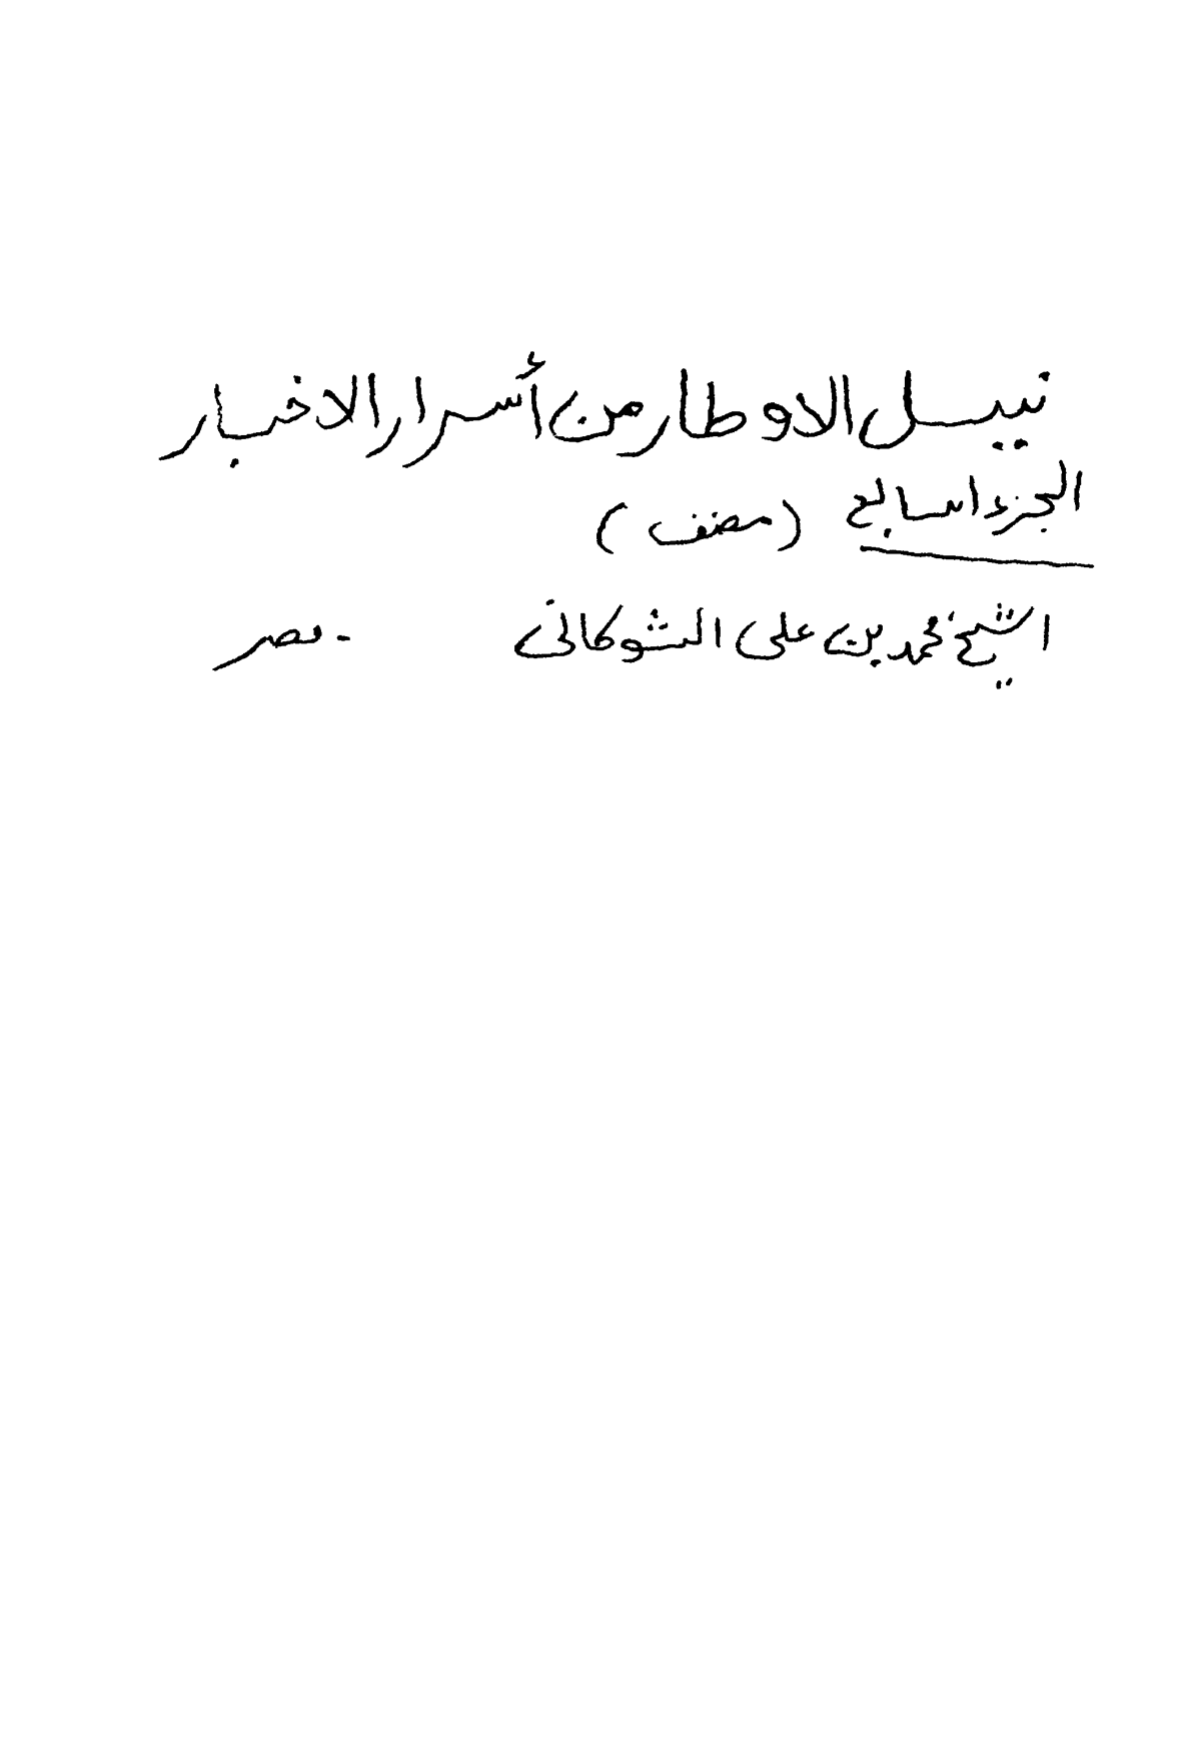 نيل الاوطار من أسرار الاخبار
الجزء السابع (مصنف)
الشيخ محمد بن على الشوكانى - مصر